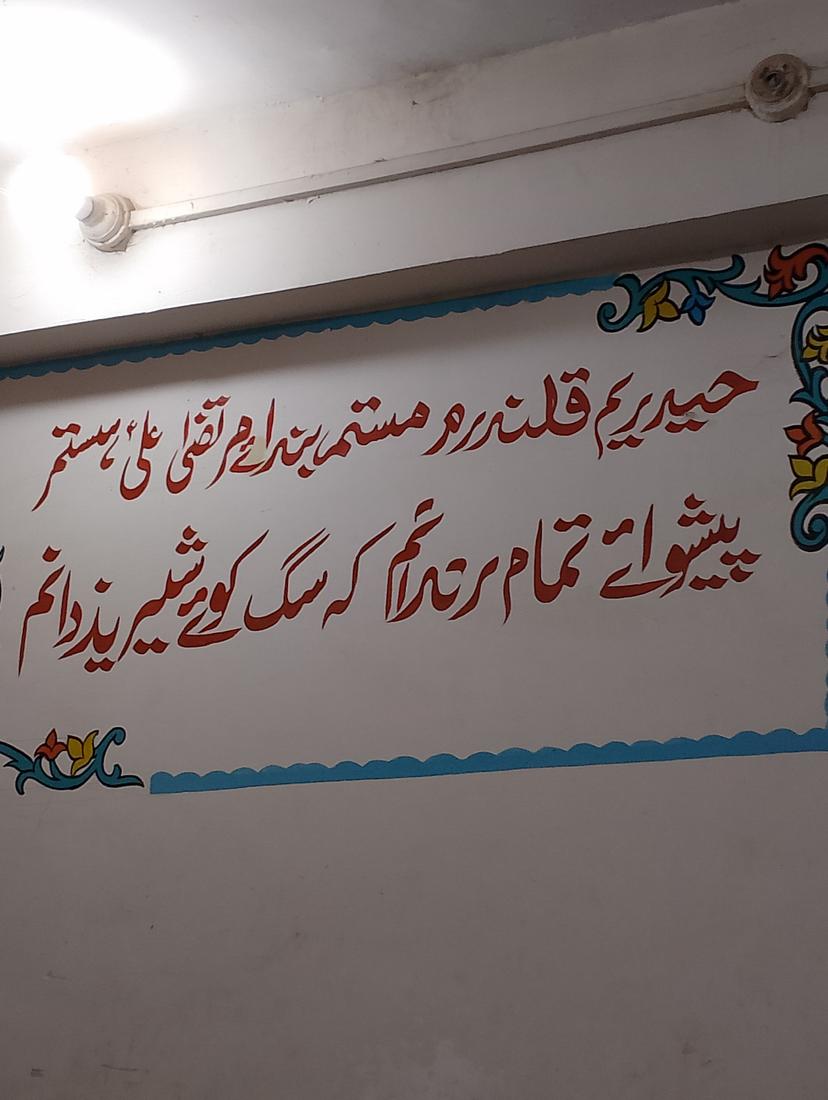 حیدریم قلندرم مستم بندۂ مرتضیٰ علیؑ ہستم
پیشوائے تمام رندانم کہ سگ کوئے شیر یزدانم